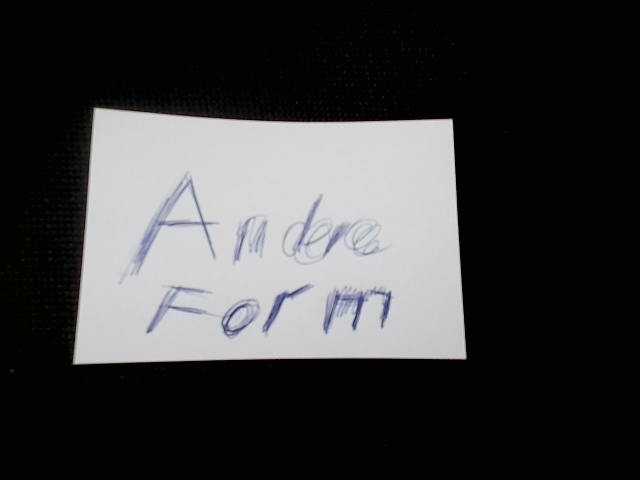 Andere
Form